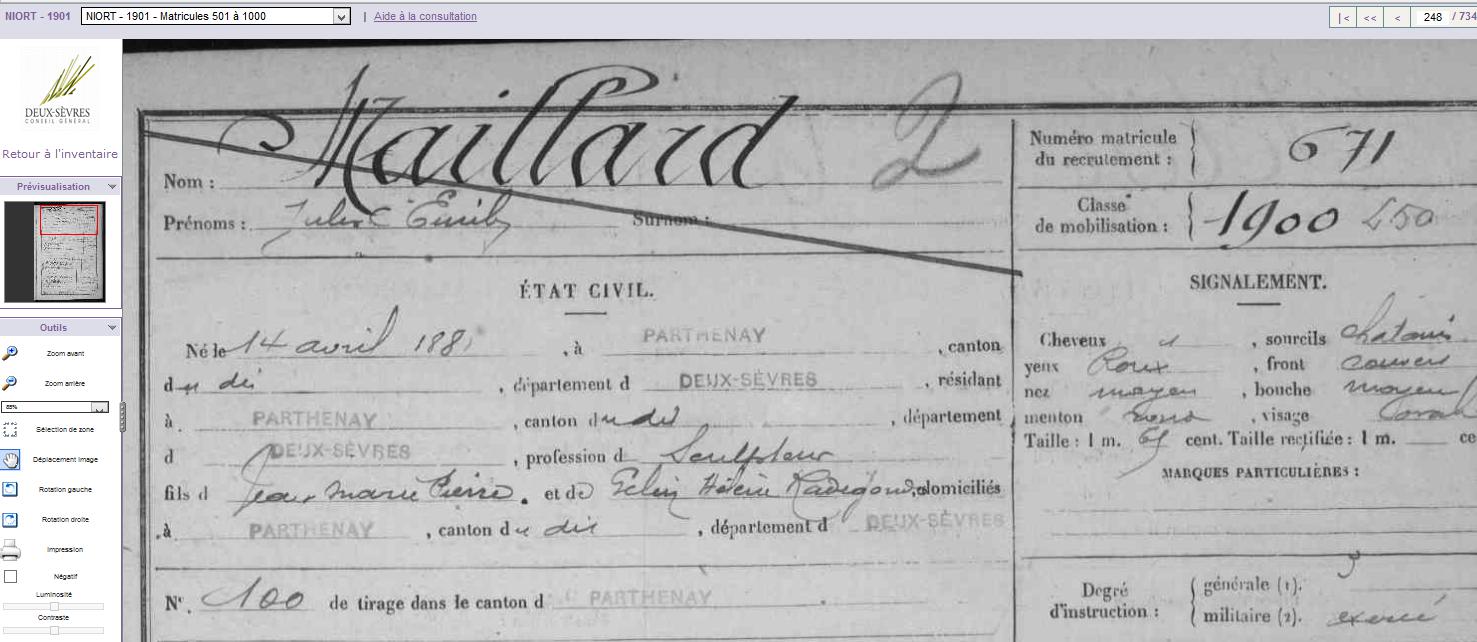 NIORT - 1901 NIORT - 1901 - Matricules 501 à 1000 | Aide à la consultation |< << < 248 / 734
DEUX-SÈVRES
CONSEIL GÉNÉRAL
Retour à l'inventaire
Prévisualisation
Outils
Zoom avant
Zoom arrière
85%
Sélection de zone
Déplacement image
Rotation gauche
Rotation droite
Impression
Négatif
Luminosité
Contraste
Nom : Maillard 2
Prénoms : Jules Emile Surnom :
ÉTAT CIVIL.
Né le 14 avril 188 , à PARTHENAY , canton
du dit , département d DEUX-SÈVRES , résidant
à PARTHENAY , canton du dit , département
d DEUX-SÈVRES , profession d Sculpteur
fils d Jean Marie Pierre . et de Gelin Hélène Radegonde, domiciliés
à PARTHENAY , canton du dit , département d DEUX-SÈVRES
N° 100 de tirage dans le canton d PARTHENAY
Numéro matricule
du recrutement : 671
Classe
de mobilisation : 1900 450
SIGNALEMENT.
Cheveux , sourcils chatains
yeux Roux , front couvert
nez moyen , bouche moyenne
menton rond , visage oval
Taille : 1 m. 65 cent. Taille rectifiée : 1 m. ce
MARQUES PARTICULIÈRES :
Degré
d'instruction :
générale (1). 3
militaire (2). exercé